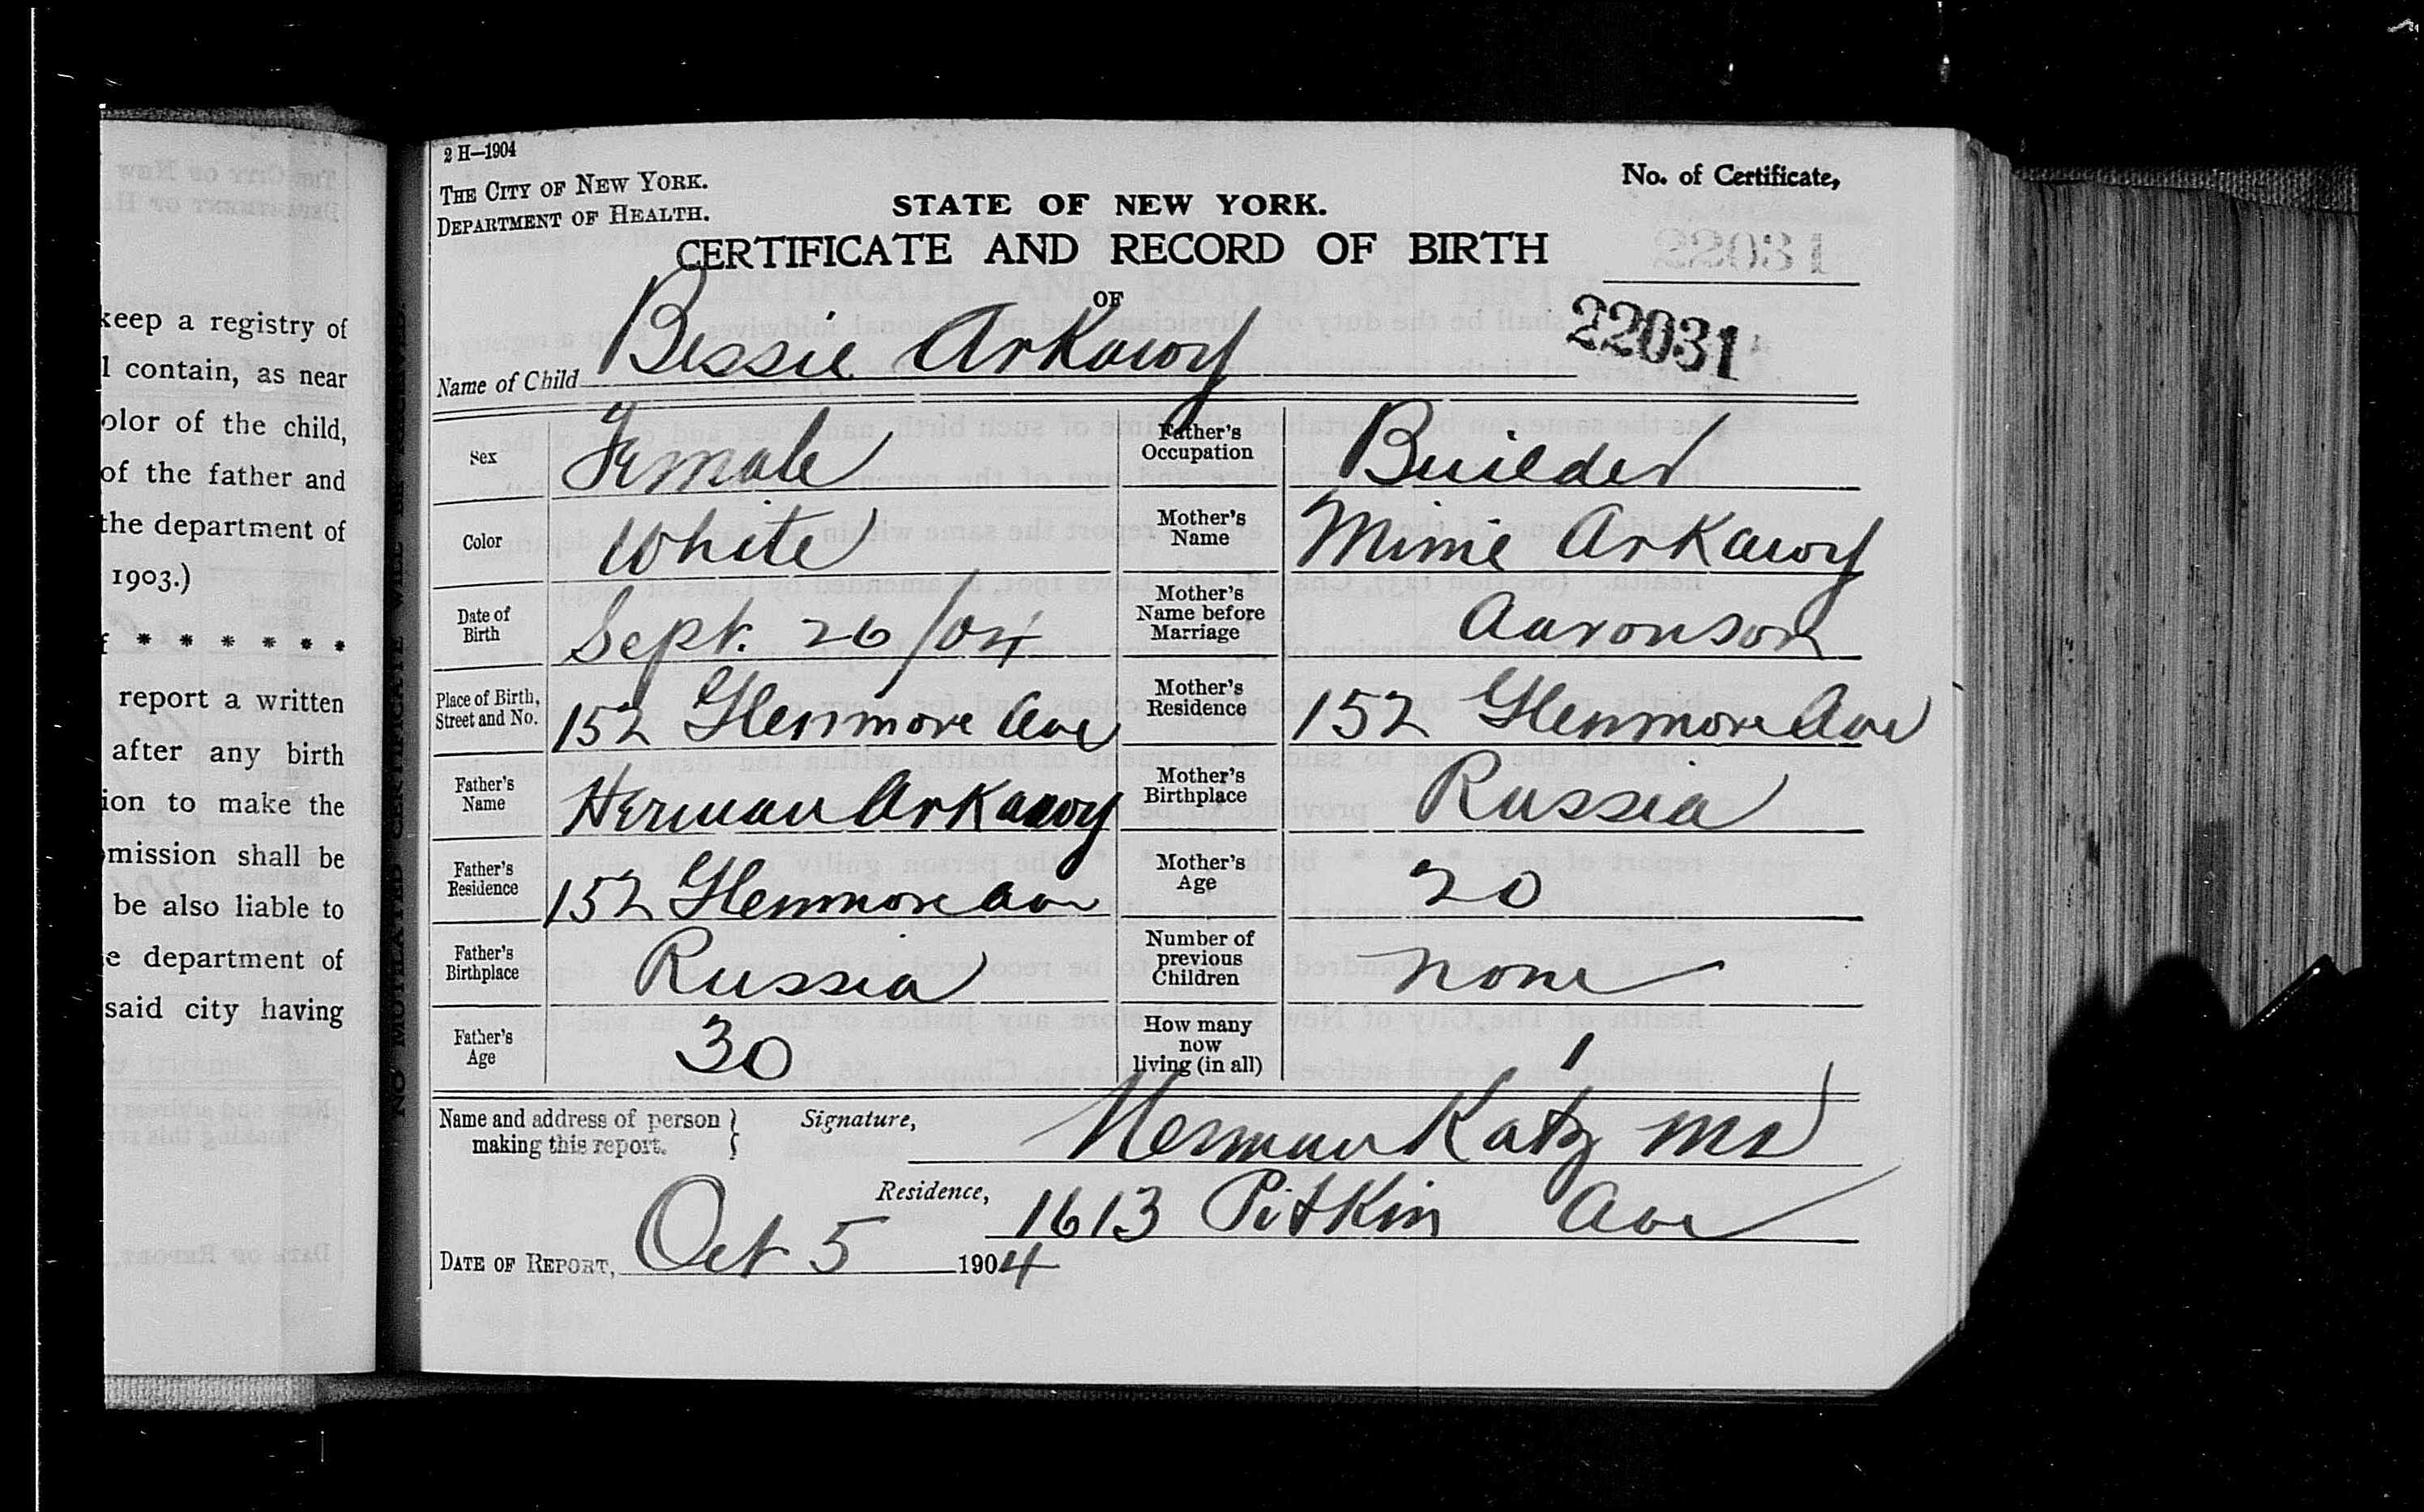 keep a registry of
l contain, as near
olor of the child,
of the father and
the department of
1903.)
f * * * * * * *
report a written
after any birth
ion to make the
mission shall be
be also liable to
e department of
said city having
NO MUTILATED CERTIFICATE WILL BE RECEIVED.
2 H—1904
THE CITY OF NEW YORK.
DEPARTMENT OF HEALTH.
STATE OF NEW YORK.
No. of Certificate,
CERTIFICATE AND RECORD OF BIRTH
OF
22031
Name of Child Bessie Arkawy
Sex Female
Father's Occupation Builder
Color White
Mother's Name Minie Arkawy
Date of Birth Sept. 26/04
Mother's Name before Marriage Aaronson
Place of Birth, Street and No. 152 Glenmore Ave
Mother's Residence 152 Glenmore Ave
Father's Name Herman Arkawy
Mother's Birthplace Russia
Father's Residence 152 Glenmore Ave
Mother's Age 20
Father's Birthplace Russia
Number of previous Children None
Father's Age 30
How many now living (in all) 1
Name and address of person making this report.
Signature, Herman Katz MD
Residence, 1613 Pitkin Ave
DATE OF REPORT, Oct 5 1904